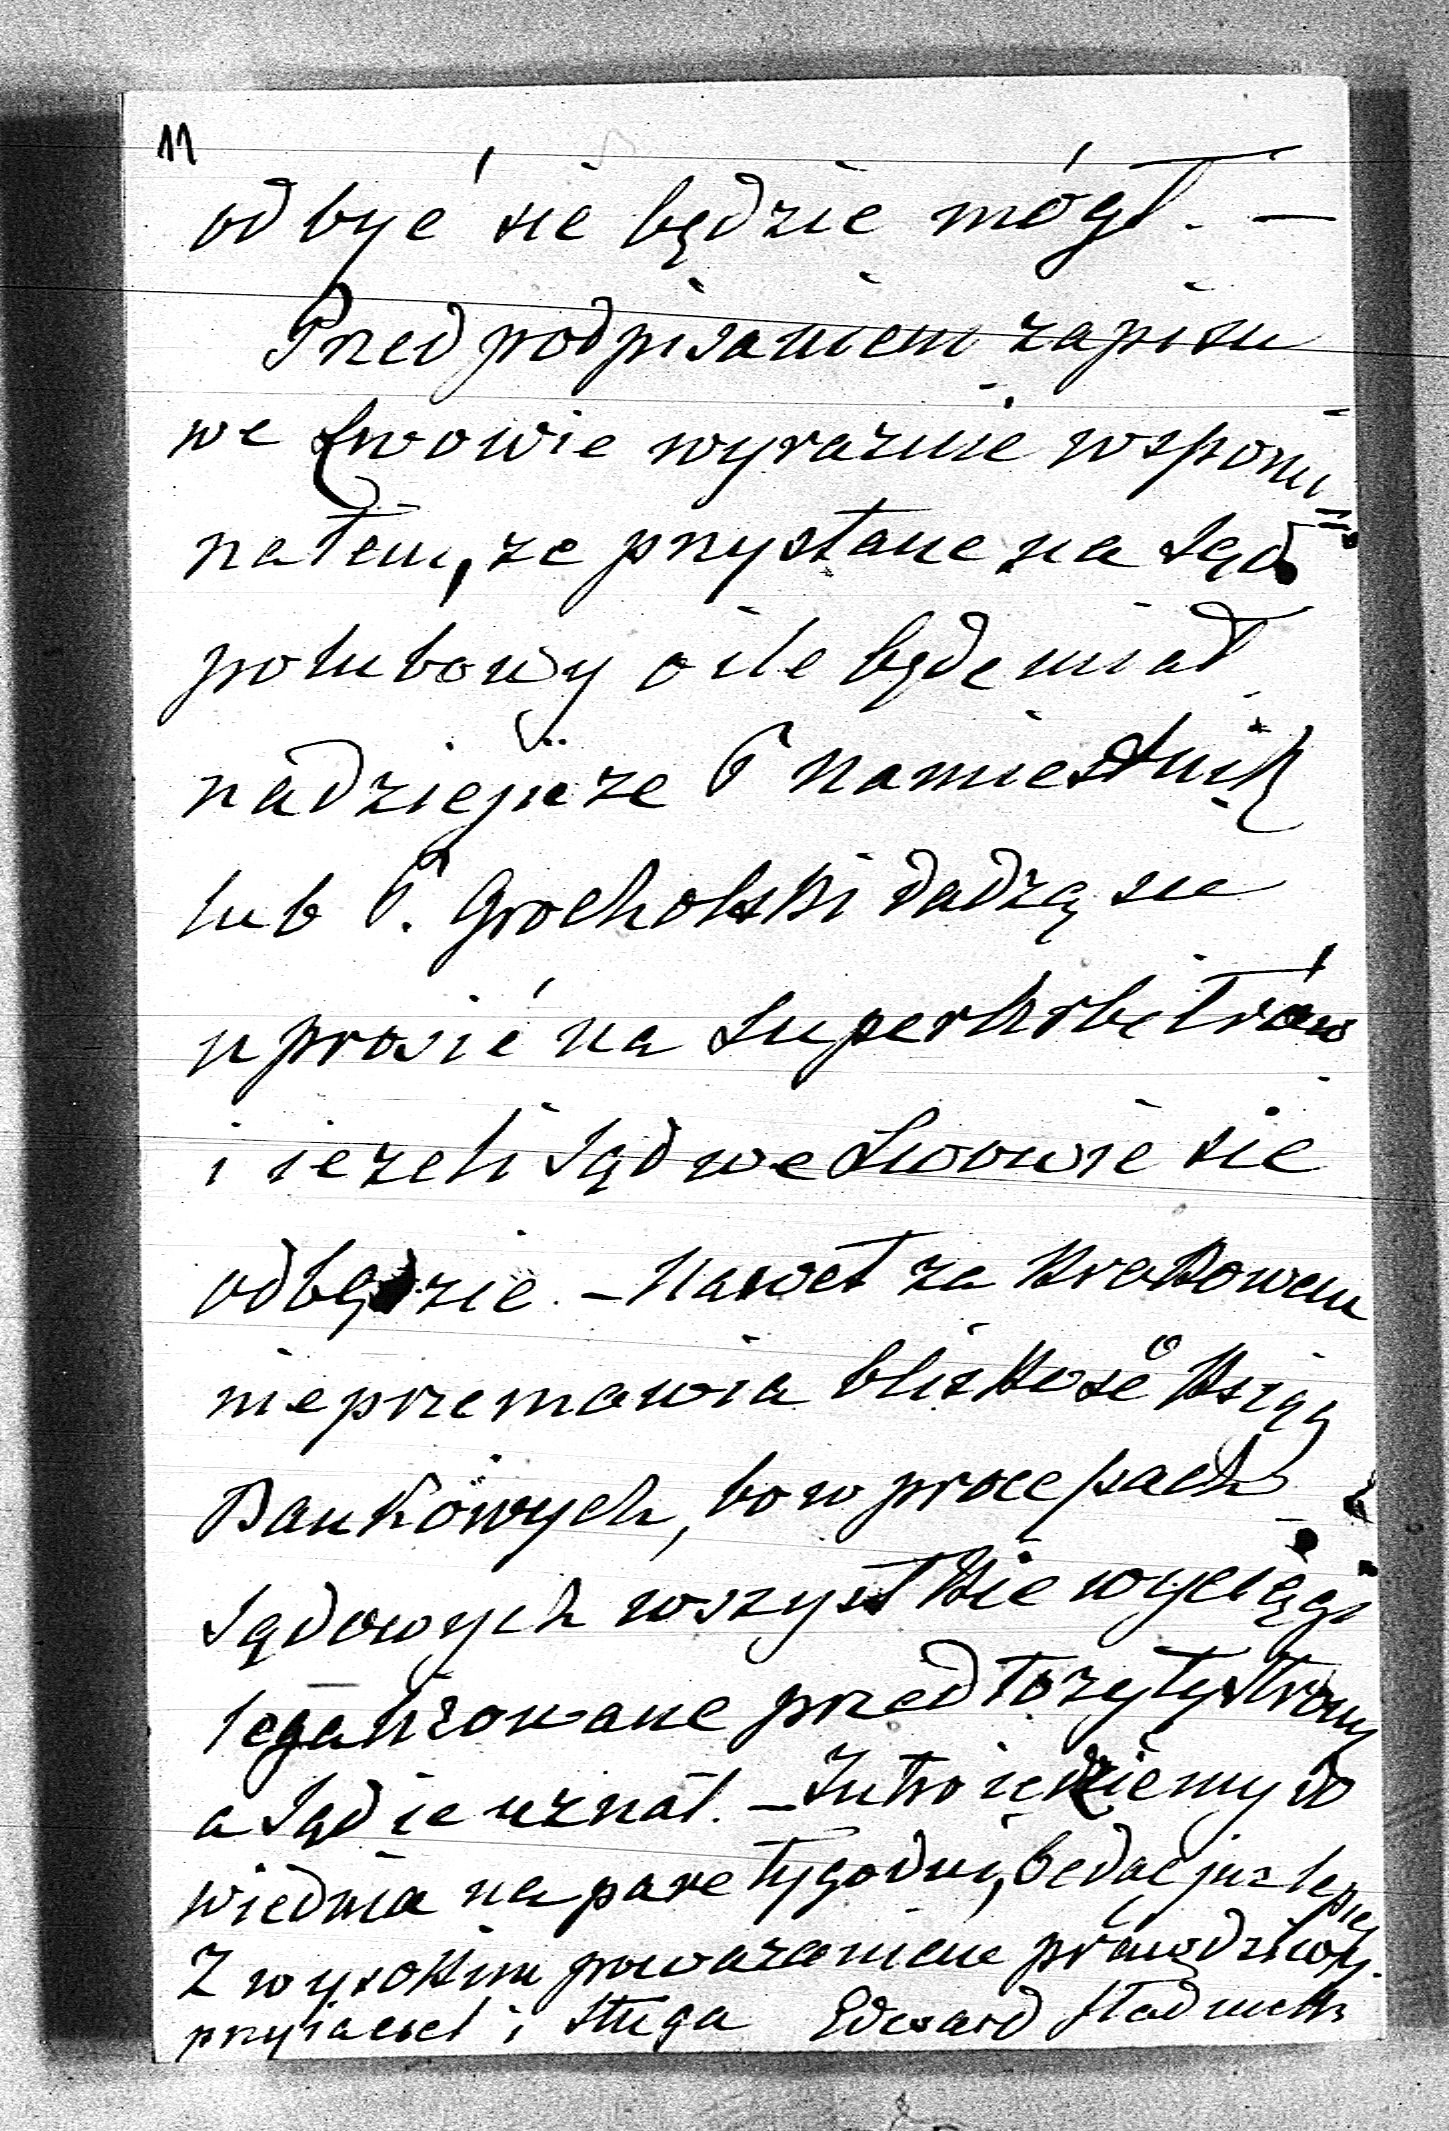 11
odbyć sie będzie mógł. —
Przed podpisaniem zapisu
we Lwowie wyraznie wspomi=
nałem, ze przystane na Sąd
polubowy o ile będę miał
nadzieje ze P Namiestnik
lub P. Grocholski dadzą sie
uprosić na SuperArbitrów
i iezeli Sąd we Lwowie sie
odbędzie. — Nawet za Krakowem
nieprzemawia bliskość Ksiąg
Bankowych, bo w processach
Sądowych wszystkie wyciągi
legalizowane przedłozyły strony
a Sąd ie uznał. — Jutro iedziemy do
Wiednia na pare tygodni, będąc juz lepiey
Z wysokim powazaniem prawdziwy
przyiaciel i Sługa Edward Stadnicki